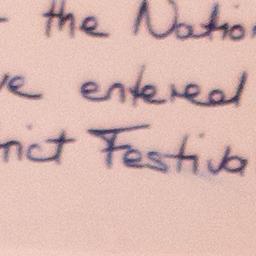 - the Natio
ve entered
rict Festiva